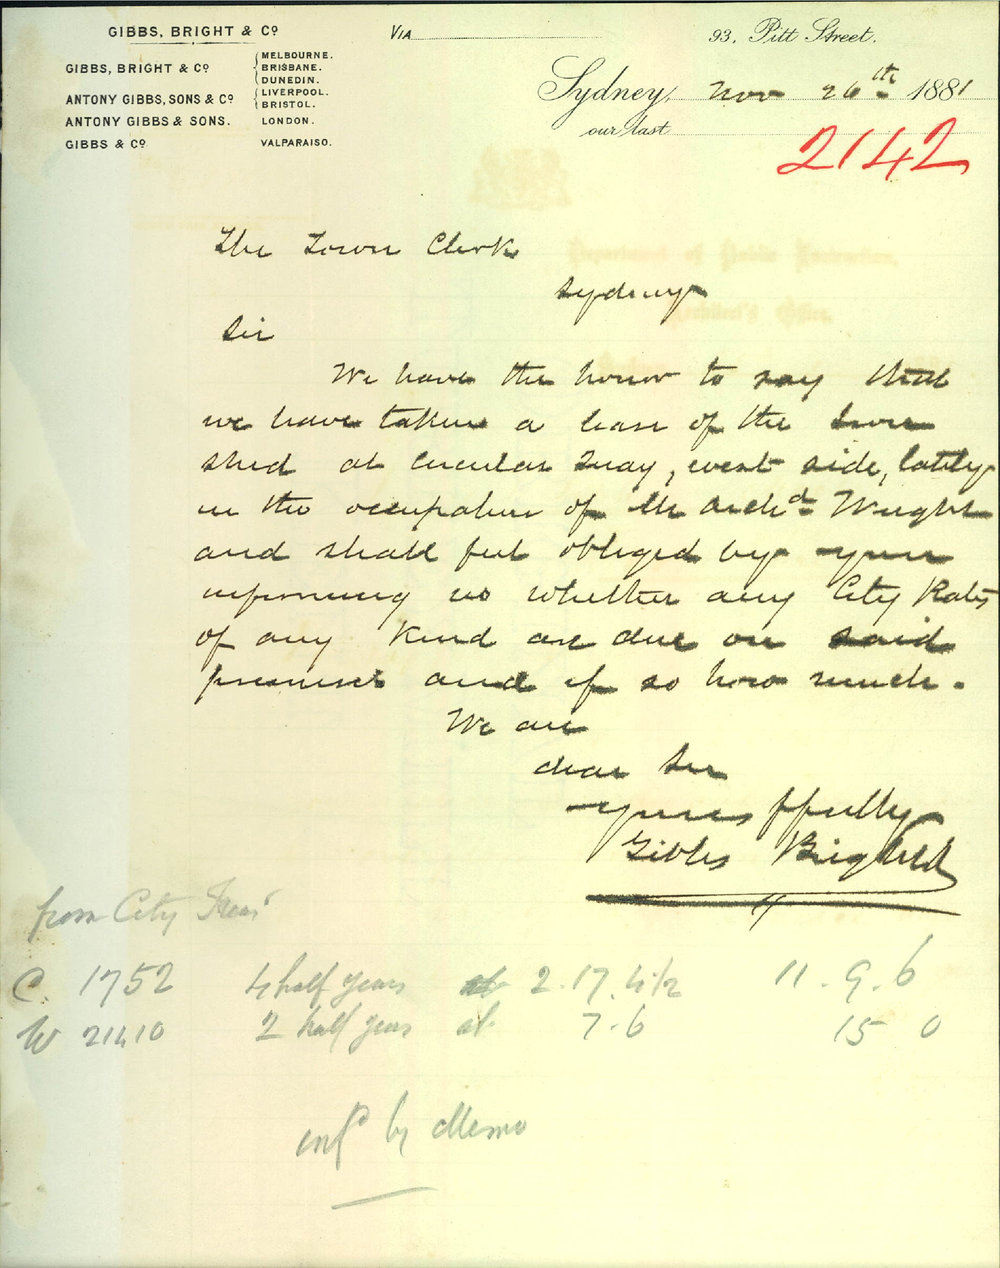 GIBBS, BRIGHT & Co
VIA
93, Pitt Street.
GIBBS, BRIGHT & Co { MELBOURNE.
BRISBANE.
DUNEDIN.
ANTONY GIBBS, SONS & Co { LIVERPOOL.
BRISTOL.
ANTONY GIBBS & SONS. LONDON.
GIBBS & Co VALPARAISO.
Sydney, Nov 26th 1881
our last
2142
The Town Clerk
Sydney
Sir
We have the honor to say that
we have taken a lease of the Iron
shed at Circular Quay, west side, lately
in the occupation of Mr Archd Wright
and shall feel obliged by your
informing us whether any City Rates
of any kind are due on said
premises and if so how much.
We are
dear Sir
Yours ffully
Gibbs Bright & Co
from City Treas'
C. 1752 4 half years at 2.17.4 1/2 11.9.6
W 21410 2 half years at 7.6 15 0
infd by Memo
Department of Public Instruction,
Architect's Office,